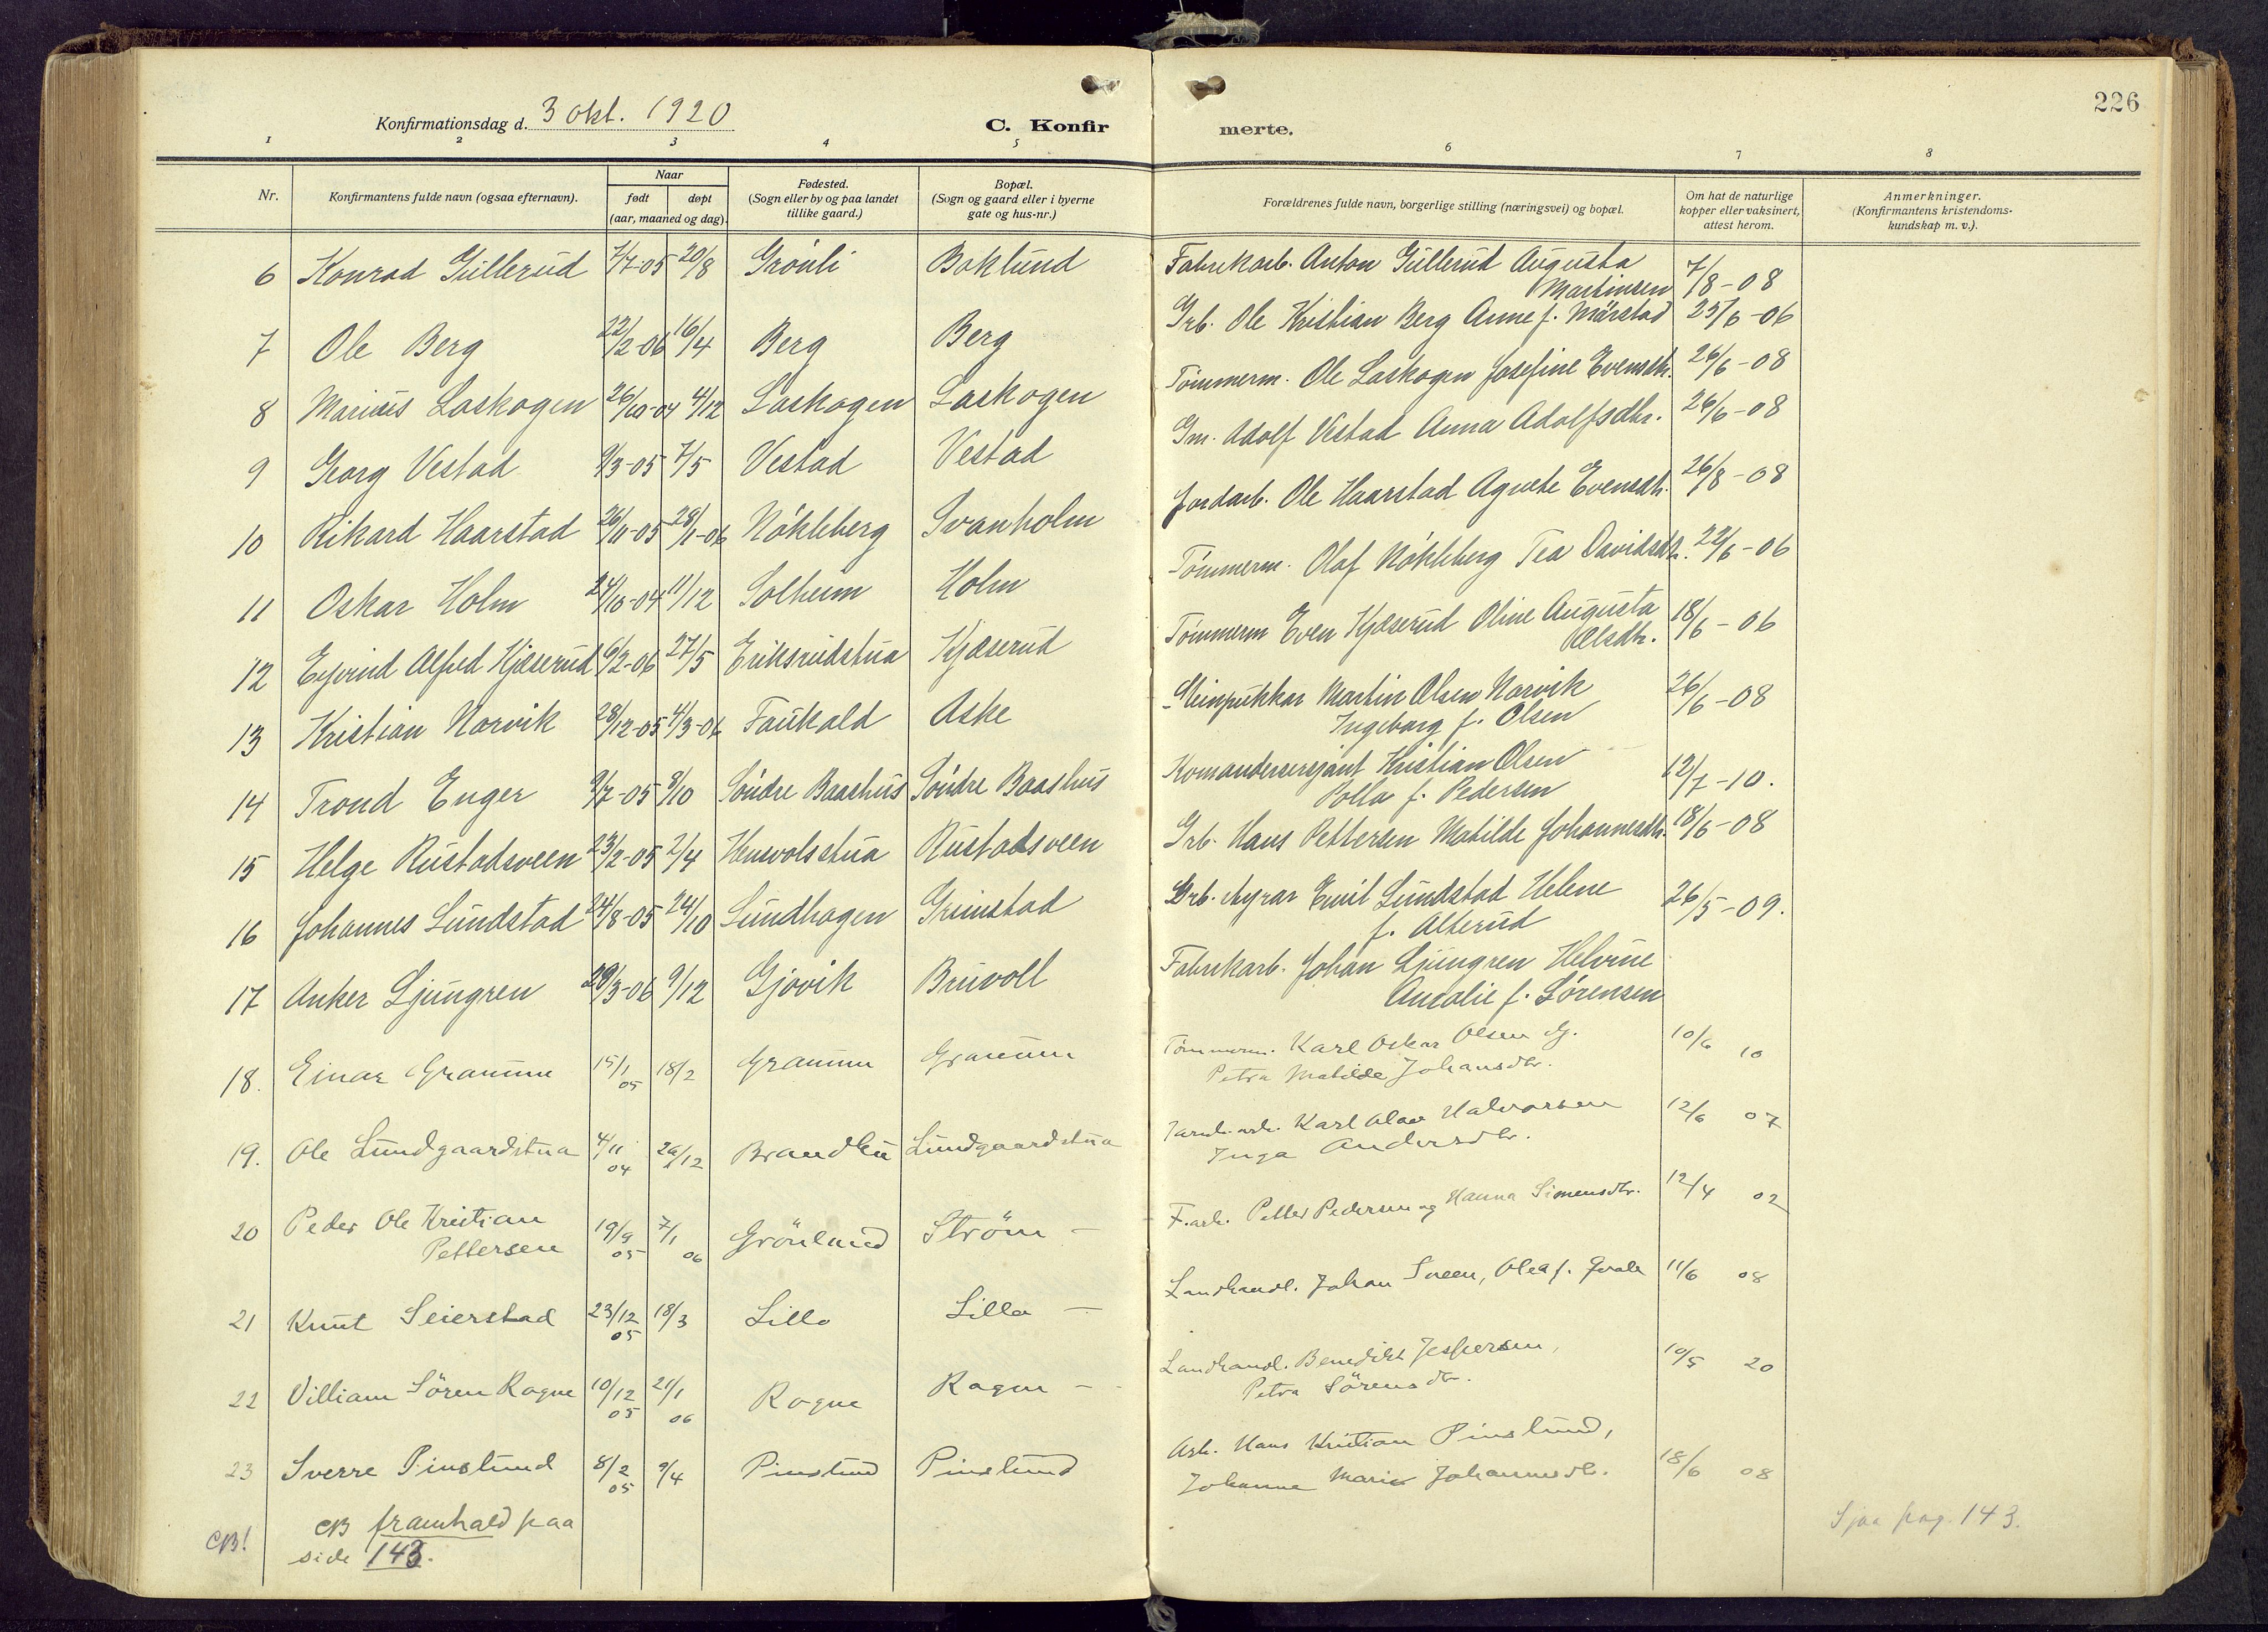 226
Konfirmationsdag d. 3 okt. 1920
C. Konfirmerte.
1 2 3 4 5 6 7 8
Nr.
Konfirmantens fulde navn (ogsaa efternavn).
Naar
født døpt
(aar, maaned og dag).
Fødested.
(Sogn eller by og paa landet
tillike gaard.)
Bopæl.
(Sogn og gaard eller i byerne
gate og hus-nr.)
Forældrenes fulde navn, borgerlige stilling (næringsvei) og bopæl.
Om hat de naturlige
kopper eller vaksinert,
attest herom.
Anmerkninger.
(Konfirmantens kristendoms-
kundskap m. v.).
6 Konrad Gullerud 7/7-05 20/8 Grönli Boklund Fabrikarb. Anton Gullerud Augusta
Martinsen 7/8-08
7 Ole Berg 22/2-06 16/4 Berg Berg Grb. Ole Kristian Berg Anne f. Mørstad 25/6-06
8 Marius Laskogen 26/10-04 4/12 Laskogen Laskogen Tömmerm. Ole Laskogen Josefine Evensdtr. 26/6-08
9 Georg Vestad 9/3-05 7/5 Vestad Vestad Gm. Adolf Vestad Anna Adolfsdtr. 26/6-08
10 Rikard Haarstad 26/11-05 28/1-06 Nökleberg Svanholm Jordarb. Ole Haarstad Agnete Evensdtr. 26/8-08
11 Oskar Holm 24/10-04 11/12 Solheim Holm Tömmerm. Olaf Nökleberg Tea Davidsdtr. 22/6-06
12 Eyvind Alfred Kjæserud 6/2-06 27/5 Eriksrudstua Kjæserud Tömmerm Even Kjæserud Oline Augusta
Olsdtr. 18/6-06
13 Kristian Narvik 28/12-05 4/3-06 Faukald Aske Steinpukkar Martin Olsen Narvik
Ingeborg f. Olsen 26/6-08
14 Trond Enger 9/7-05 8/10 Söndre Baashus Söndre Baashus Komandersersjant Kristian Olsen
Polla f. Pedersen 12/7-10.
15 Helge Rustadsveen 23/2-05 2/4 Hensvolsstua Rustadsveen Grb. Hans Pettersen Matilde Johannesdtr. 18/6-08
16 Johannes Lundstad 24/8-05 24/10 Lundhagen Grimstad Grb. styrar Emil Lundstad Helene
f. Alterud 26/5-09.
17 Anker Ljungren 29/3-06 9/12 Gjøvik Bruvoll Fabrikarb. Johan Ljungren Helvine
Amalie f. Sørensen
18. Einar Graumm 15/1 05 18/2 Graumm Graumm Tömmerm. Karl Oskar Olsen og
Petra Matilde Johansdtr. 10/6 10
19. Ole Lundgaardstua 4/11 04 26/12 Brandbu Lundgaardstua Karl Olav Halvorsen
Inga Andersdtr. 12/6 07
20 Peder Ole Kristian
Pettersen 19/9 05 7/1 06 Grönlund Ström - F.arb. Petter Pedersen og Hanna Simensdtr. 12/4 02
21 Knut Seierstad 23/12 05 18/3 Lillo Lillo - Landhandl. Johan Sveen, Olea f. 11/6 08
22 Villiam Sören Rogne 10/12 05 21/1 06 Rogne Rogne - Landhandl. Benedikt Jespersen,
Petra Sörensdtr. 10/5 20
23 Sverre Pinslund 8/2 05 9/4 Pinslund Pinslund Arb. Hans Kristian Pinslund,
Johanne Marie Johannesdtr. 18/6 08
NB! NB framhald paa
side 143.
Sjaa pag. 143.